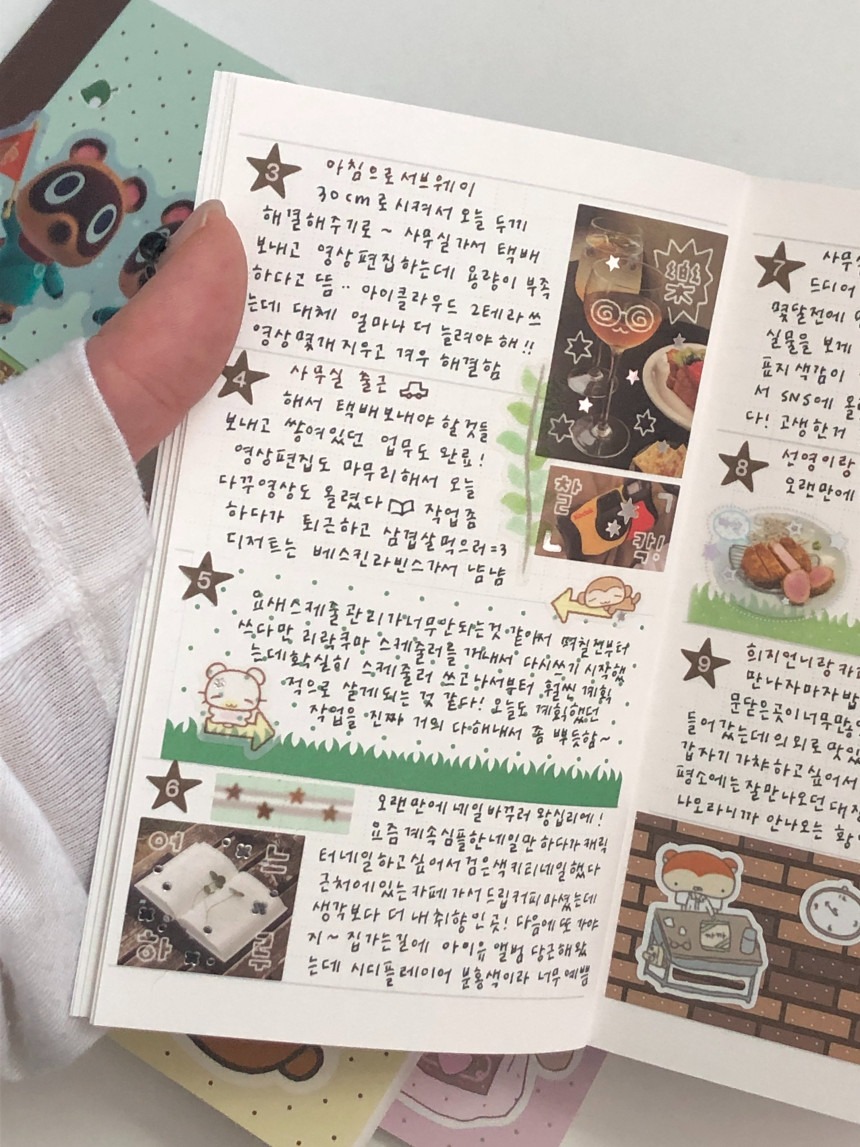 3
아침으로 서브웨이
30cm로 시켜서 오늘 두끼
해결해주기로~ 사무실가서 택배
보내고 영상편집하는데 용량이 부족
하다고 뜸.. 아이클라우드 2테라쓰
는데 대체 얼마나 더 늘려야 해!!
영상 몇개 지우고 겨우 해결함
樂
4
사무실 출근
해서 택배보내야 할것들
보내고 쌓여있던 업무도 완료!
영상편집도 마무리해서 오늘
다꾸영상도 올렸다 작업좀
하다가 퇴근하고 삼겹살먹으러=3
디저트는 베스킨라빈스가서 냠냠
찰
칵!
Kodak
5
요새 스케줄 관리가 너무 안되는것 같아서 몇칠전부터
쓰다만 리락쿠마 스케줄러를 꺼내서 다시쓰기 시작했
는데 확실히 스케줄러 쓰고나서부터 훨씬 계획
적으로 살게되는 것 같다! 오늘도 계획했던
작업을 진짜 거의 다해내서 좀 뿌듯함~
6
오랜만에 네일 바꾸러 왕십리에!
요즘 계속 심플한네일만 하다가 캐릭
터네일 하고싶어서 검은색 키티네일했다
근처에 있는 카페가서 드립커피 마셨는데
생각보다 더 내 취향인곳! 다음에 또 가야
지~ 집가는길에 아이유 앨범 당근해왔
는데 시디플레이어 분홍색이라 너무예쁨
하
루
7
드디어
몇달전에
실물을 보게
표지색감이
서 SNS에 올
다! 고생한거
8
선영이랑
오랜만에
9
희지언니랑 카
만나자마자 밥
문닫은곳이 너무많
들어갔는데 의외로 맛있
갑자기 가챠 하고싶어서
평소에는 잘만나오던 대
나오라니까 안나오는 황